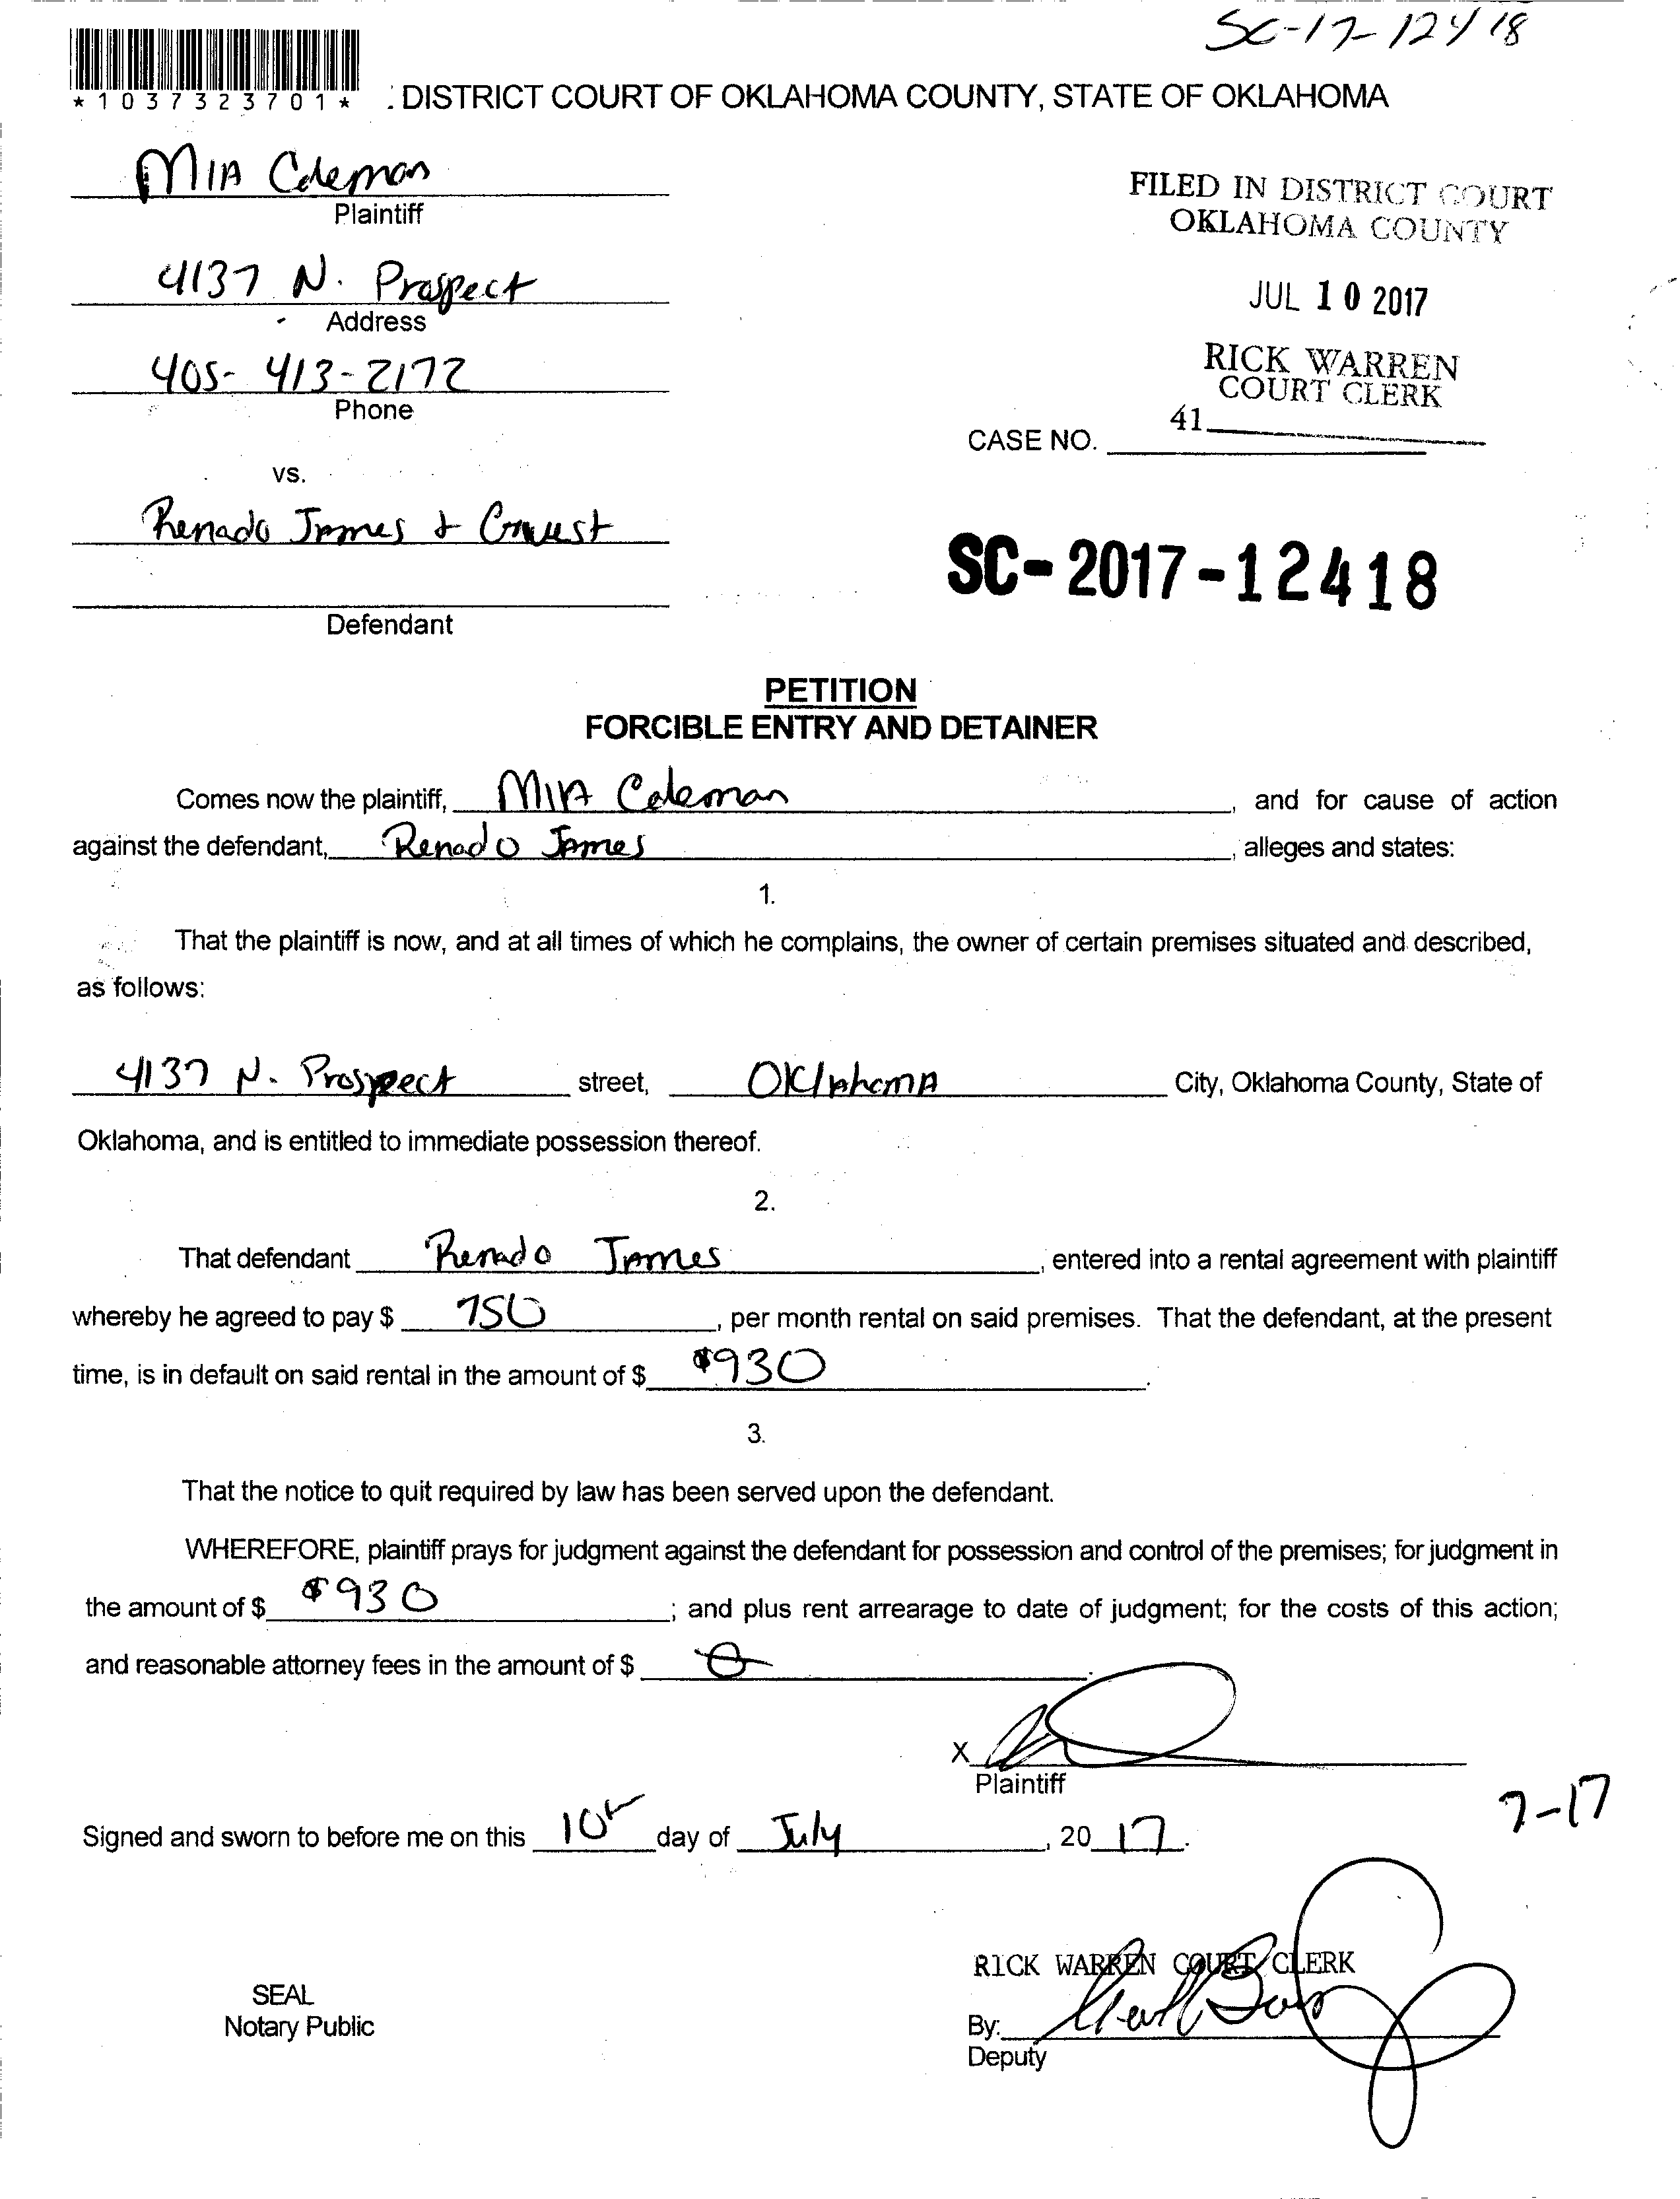 SC-17-12418
*1037323701*
DISTRICT COURT OF OKLAHOMA COUNTY, STATE OF OKLAHOMA
MIA Coleman
Plaintiff
FILED IN DISTRICT COURT
OKLAHOMA COUNTY
4137 N. Prospect
Address
JUL 10 2017
405-413-2172
Phone
RICK WARREN
COURT CLERK
41
CASE NO.
vs.
Renado James +
SC-2017-12418
Defendant
PETITION
FORCIBLE ENTRY AND DETAINER
Comes now the plaintiff, MIA Coleman, and for cause of action
against the defendant, Renado James, alleges and states:
1.
That the plaintiff is now, and at all times of which he complains, the owner of certain premises situated and described,
as follows:
4137 N. Prospect street, OKlahomA City, Oklahoma County, State of
Oklahoma, and is entitled to immediate possession thereof.
2.
That defendant Renado James, entered into a rental agreement with plaintiff
whereby he agreed to pay $ 750, per month rental on said premises. That the defendant, at the present
time, is in default on said rental in the amount of $ $930.
3.
That the notice to quit required by law has been served upon the defendant.
WHEREFORE, plaintiff prays for judgment against the defendant for possession and control of the premises; for judgment in
the amount of $ $930; and plus rent arrearage to date of judgment; for the costs of this action;
and reasonable attorney fees in the amount of $ 0.
X
Plaintiff
7-17
Signed and sworn to before me on this 10th day of July, 2017.
RICK WARREN COURT CLERK
SEAL
Notary Public
By:
Deputy